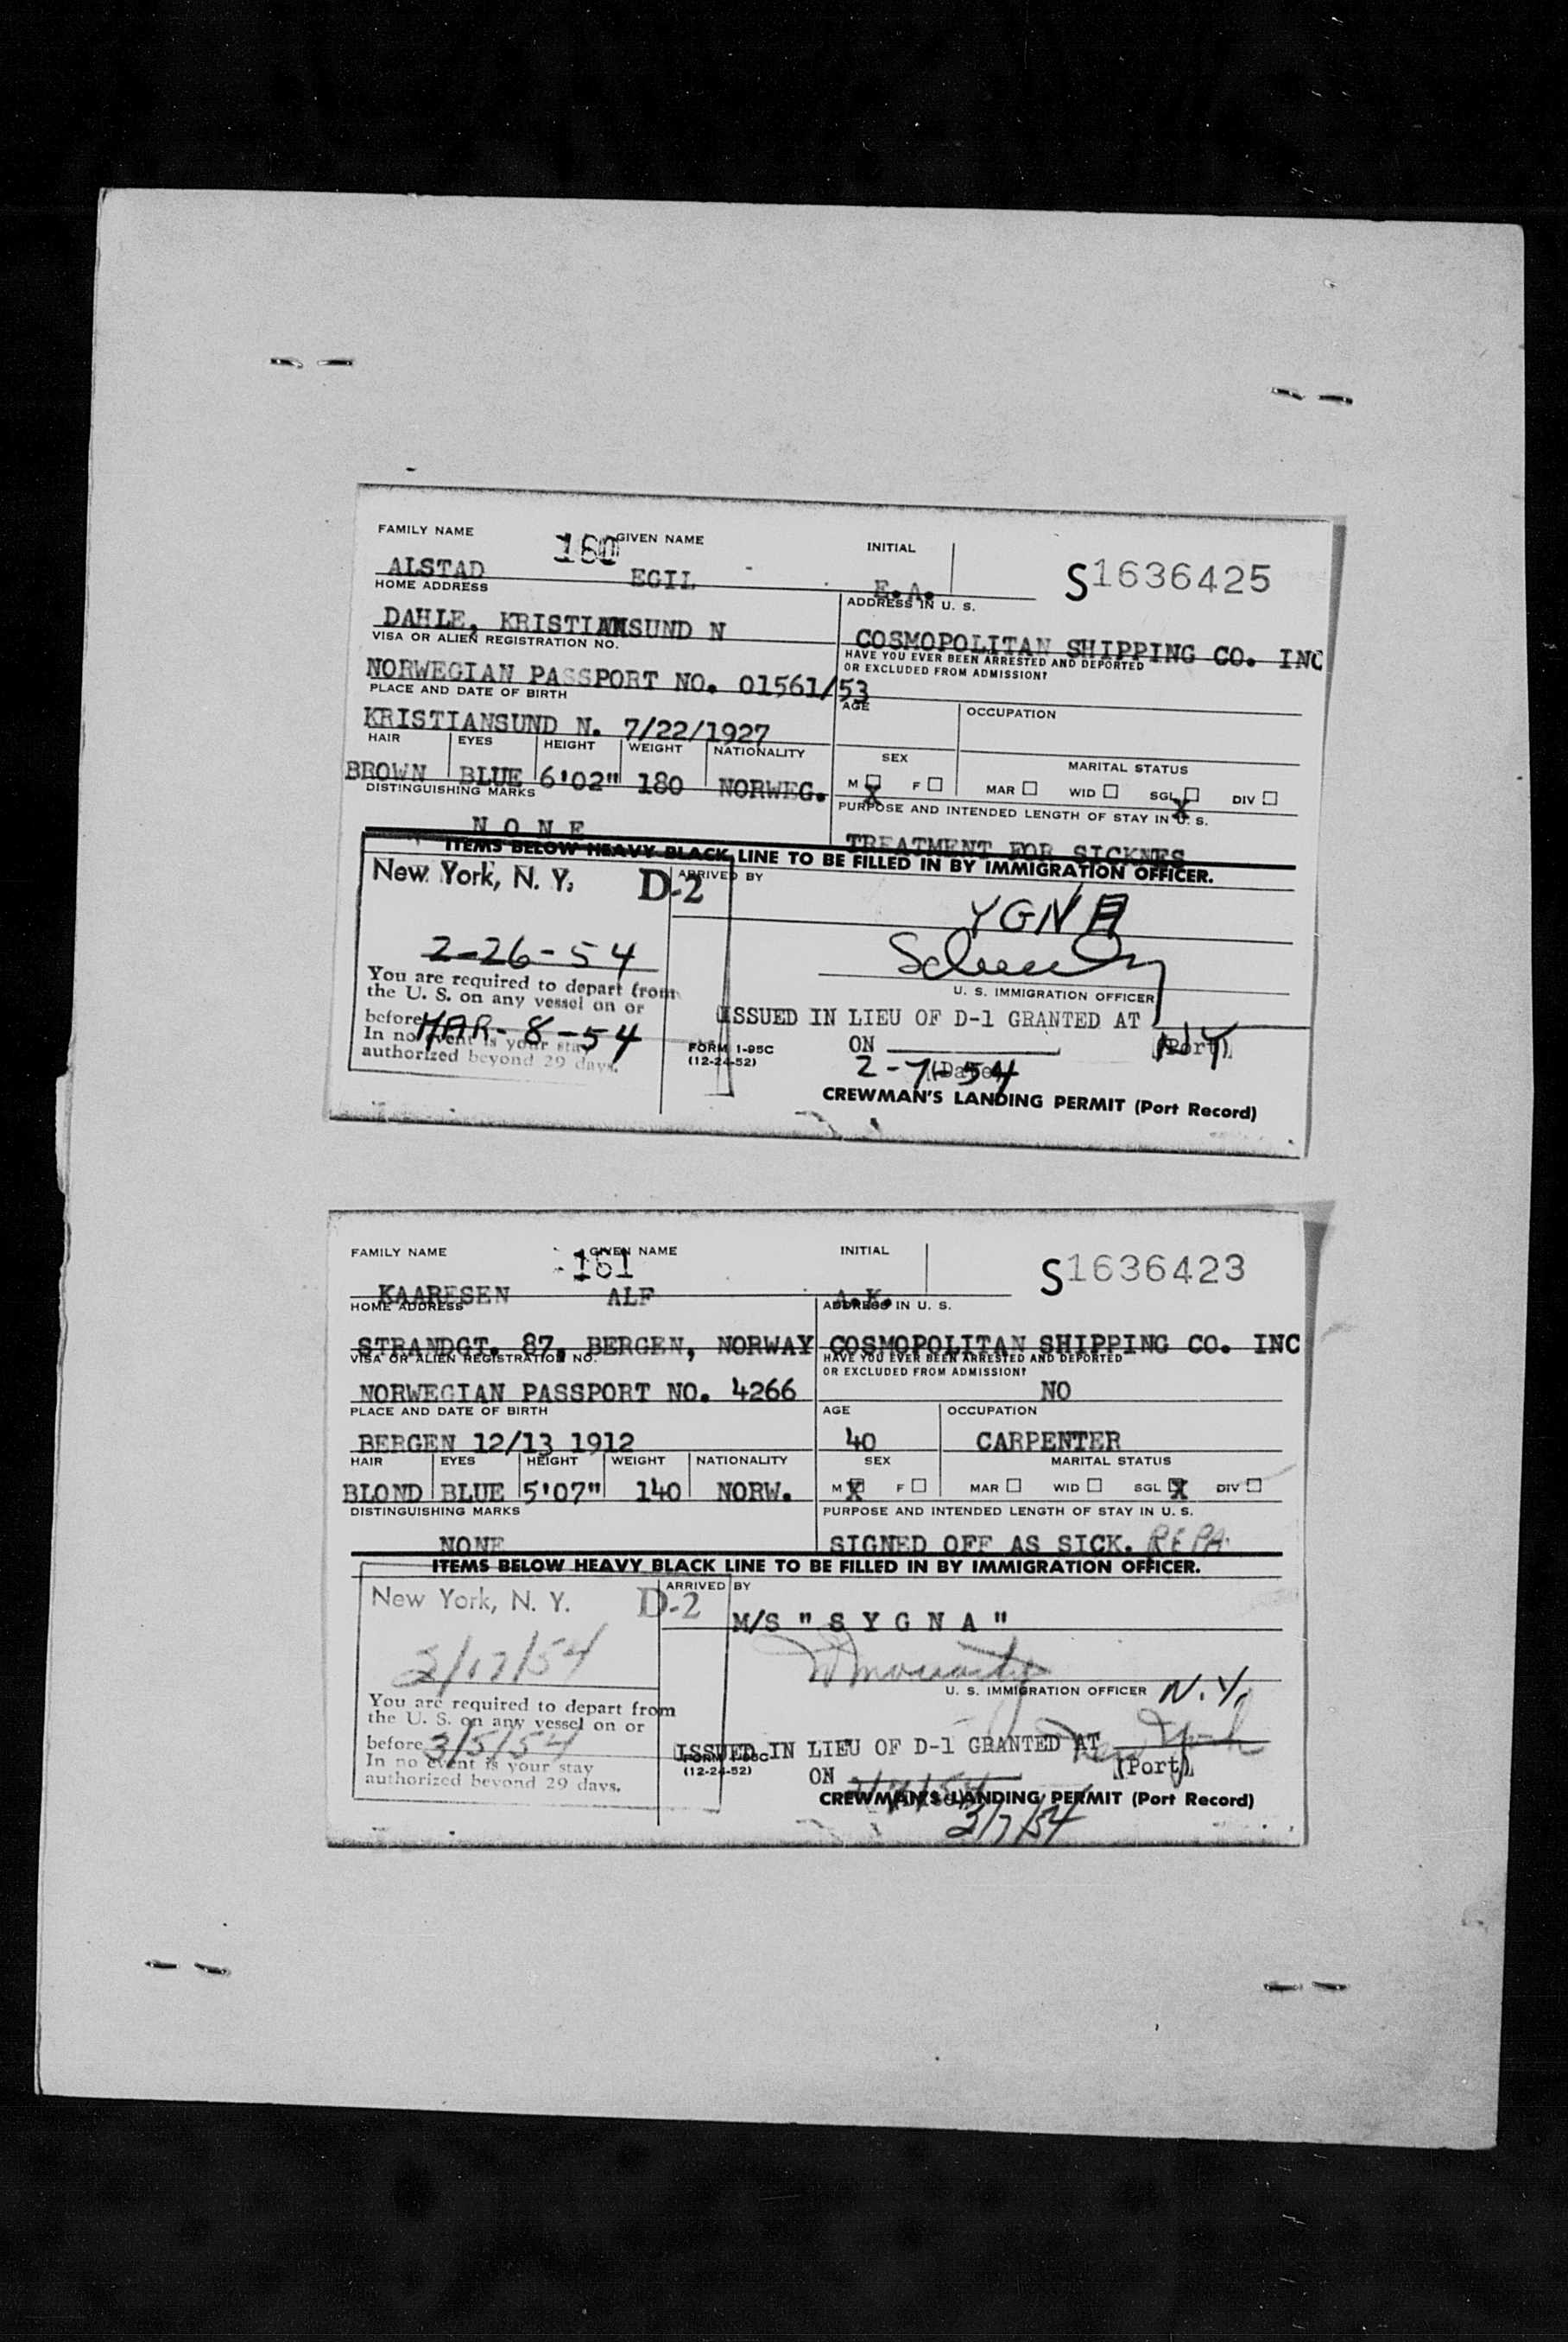 FAMILY NAME 160 GIVEN NAME INITIAL
ALSTAD EGIL E.A. S1636425
HOME ADDRESS ADDRESS IN U. S.
DAHLE, KRISTIANSUND N COSMOPOLITAN SHIPPING CO. INC
VISA OR ALIEN REGISTRATION NO. HAVE YOU EVER BEEN ARRESTED AND DEPORTED
OR EXCLUDED FROM ADMISSION?
NORWEGIAN PASSPORT NO. 01561/53
PLACE AND DATE OF BIRTH AGE OCCUPATION
KRISTIANSUND N. 7/22/1927
HAIR EYES HEIGHT WEIGHT NATIONALITY SEX MARITAL STATUS
BROWN BLUE 6'02" 180 NORWEG. M X F MAR WID SGL X DIV
DISTINGUISHING MARKS PURPOSE AND INTENDED LENGTH OF STAY IN U. S.
N O N E TREATMENT FOR SICKNES
ITEMS BELOW HEAVY BLACK LINE TO BE FILLED IN BY IMMIGRATION OFFICER.
New York, N. Y. D-2 ARRIVED BY
YGNA
2-26-54
You are required to depart from
the U. S. on any vessel on or
before MAR-8-54
In no event is your stay
authorized beyond 29 days.
U. S. IMMIGRATION OFFICER
ISSUED IN LIEU OF D-1 GRANTED AT NY
FORM I-95C ON (Port)
(12-24-52) 2-7-54 (Date)
CREWMAN'S LANDING PERMIT (Port Record)
FAMILY NAME 161 GIVEN NAME INITIAL
KAARESEN ALF A.K. S1636423
HOME ADDRESS ADDRESS IN U. S.
STRANDGT. 87, BERGEN, NORWAY COSMOPOLITAN SHIPPING CO. INC
VISA OR ALIEN REGISTRATION NO. HAVE YOU EVER BEEN ARRESTED AND DEPORTED
OR EXCLUDED FROM ADMISSION?
NORWEGIAN PASSPORT NO. 4266 NO
PLACE AND DATE OF BIRTH AGE OCCUPATION
BERGEN 12/13 1912 40 CARPENTER
HAIR EYES HEIGHT WEIGHT NATIONALITY SEX MARITAL STATUS
BLOND BLUE 5'07" 140 NORW. M X F MAR WID SGL X DIV
DISTINGUISHING MARKS PURPOSE AND INTENDED LENGTH OF STAY IN U. S.
NONE SIGNED OFF AS SICK. REPA
ITEMS BELOW HEAVY BLACK LINE TO BE FILLED IN BY IMMIGRATION OFFICER.
New York, N. Y. D-2 ARRIVED BY
M/S "S Y G N A"
2/17/54
You are required to depart from
the U. S. on any vessel on or
before 3/5/54
In no event is your stay
authorized beyond 29 days.
U. S. IMMIGRATION OFFICER N.Y.
ISSUED IN LIEU OF D-1 GRANTED AT New York
FORM I-95C (Port)
(12-24-52) ON 2/7/54
CREWMAN'S LANDING PERMIT (Port Record)
2/7/54